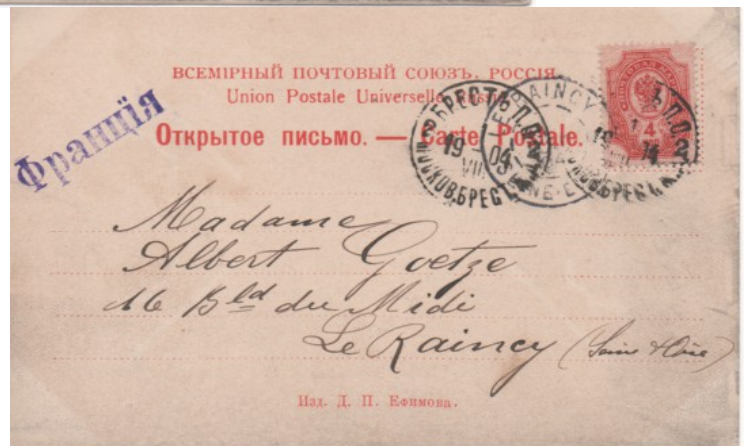 ВСЕМІРНЫЙ ПОЧТОВЫЙ СОЮЗЪ. РОССІЯ.
Union Postale Universelle. Russie.
Франція
Открытое письмо. — Carte Postale.
4
19
VII
04
Madame
Albert Goetze
16 Bld du Midi
Le Raincy (Seine & Oise)
Изд. Д. П. Ефимова.